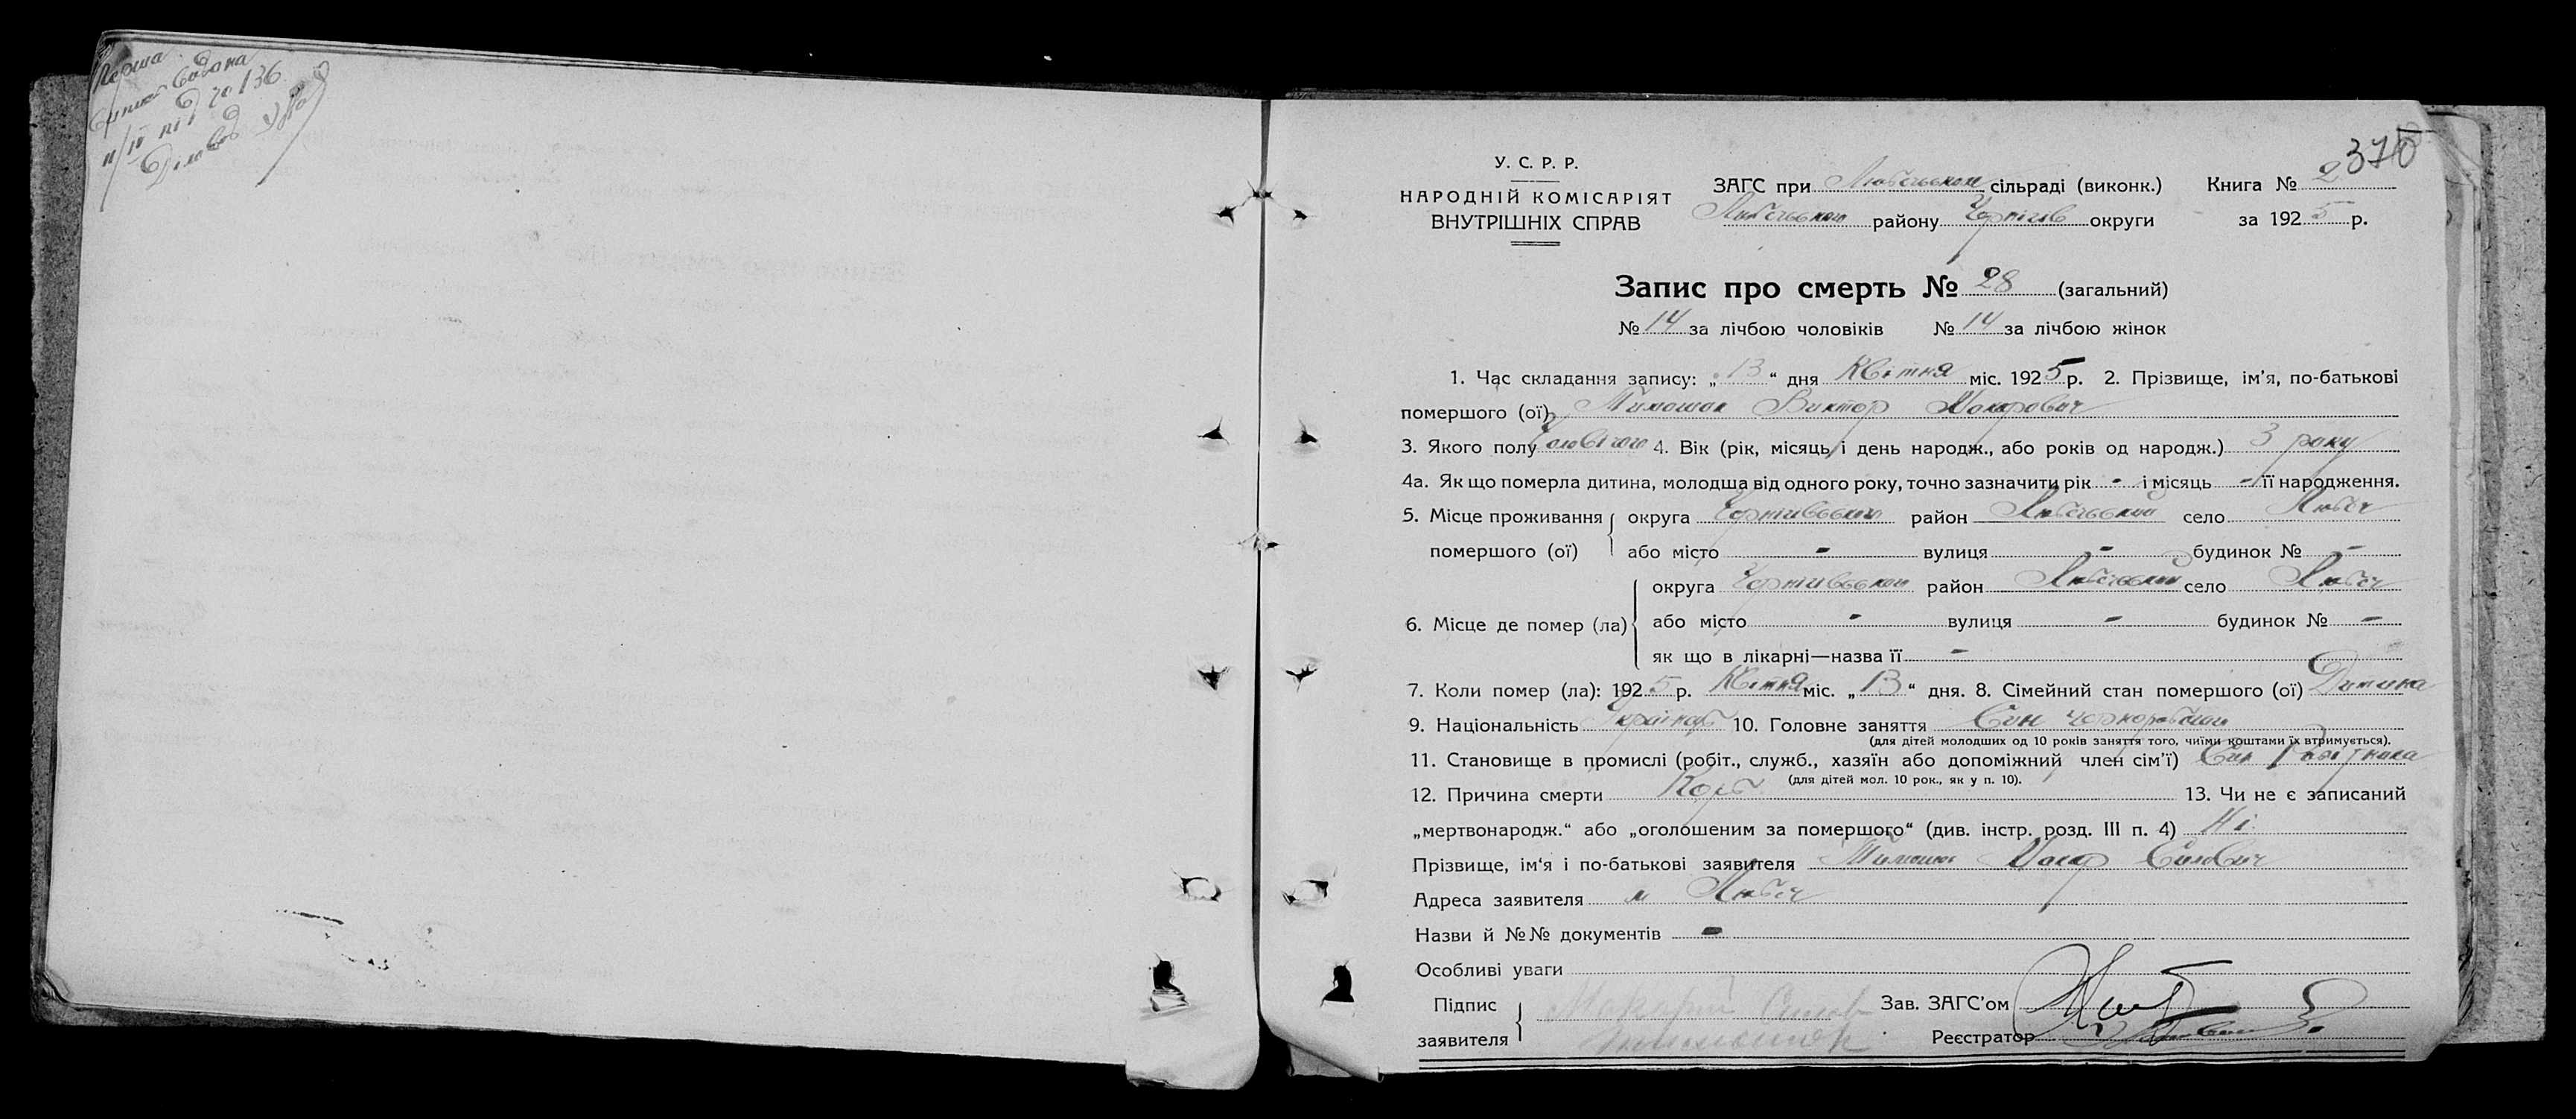 Перша
видана
11/IV під № 136
Діловод
370
У. С. Р. Р.
НАРОДНІЙ КОМІСАРІЯТ
ВНУТРІШНІХ СПРАВ
ЗАГС при Любецьком сільраді (виконк.) Книга № 2
Любецького району Чернігів округи за 1925 р.
Запис про смерть № 28 (загальний)
№ 14 за лічбою чоловіків № 14 за лічбою жінок
1. Час складання запису: „13“ дня Квітня міс. 1925 р. 2. Прізвище, ім’я, по-батькові
помершого (ої) Тимошок Виктор Макарович
3. Якого полу Чоловічого 4. Вік (рік, місяць і день народж., або років од народж.) 3 року
4а. Як що померла дитина, молодша від одного року, точно зазначити рік - і місяць - її народження.
5. Місце проживання округа Чернигівського район Любецький село Любеч
помершого (ої) або місто - вулиця - будинок № -
округа Чернигівського район Любецький село Любеч
6. Місце де помер (ла) або місто - вулиця - будинок № -
як що в лікарні—назва її -
7. Коли помер (ла): 1925 р. Квітня міс. „13“ дня. 8. Сімейний стан помершого (ої) Дитина
9. Національність Українець 10. Головне заняття Син чорнороба
(для дітей молодших од 10 років заняття того, чиїми коштами їх втримується).
11. Становище в промислі (робіт., служб., хазяїн або допоміжний член сім’ї) Син Робітника
(для дітей мол. 10 рок., як у п. 10).
12. Причина смерти Корь 13. Чи не є записаний
„мертвонародж.“ або „оголошеним за помершого“ (див. інстр. розд. III п. 4) Ні
Прізвище, ім‘я і по-батькові заявителя Тимошок Макар Силович
Адреса заявителя м Любеч
Назви й №№ документів -
Особливі уваги
Підпис Макарій Силов Зав. ЗАГС’ом
заявителя Тимошок Реєстратор